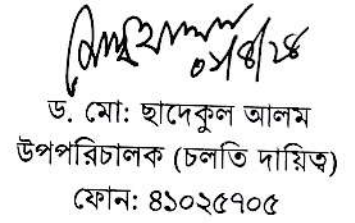 ০১/৪/২৪
ড. মো: ছাদেকুল আলম
উপপরিচালক (চলতি দায়িত্ব)
ফোন: ৪১০২৫৭০৫